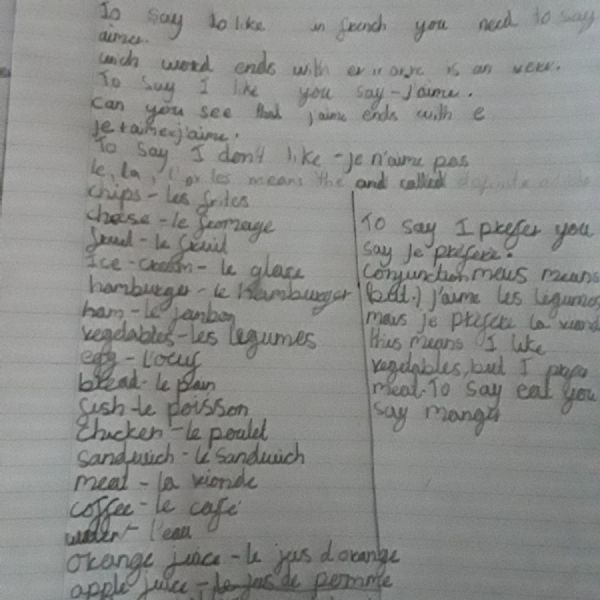 To say to like in french you need to say
aimer.
wich word ends with er is an verr.
To say I like you say-J'aime.
Can you see that j'aime ends with e
je+aime=j'aime.
To say I don't like -je n'aime pas
le, la, l' or les means the and called
chips- les frites
chease - le fromage
fruit - le fruit
Ice-cream- le glace
hamburger - le Hamburger
ham - le jambon
vegetables-les legumes
egg - l'oeuf
bread- le pain
fish-le poisson
Chicken - le poulet
Sandwich - le sandwich
meat - la vionde
coffee - le café
water - l'eau
orange juice - le jus d'orange
apple juice - le jus de pomme
To say I prefer you
say Je préfére.
Conjunction meus means
(but.) J'aime les legumes
mais je préfére la viand
this means I like
vegetables, but I prefe
meat. To say eat you
say manger